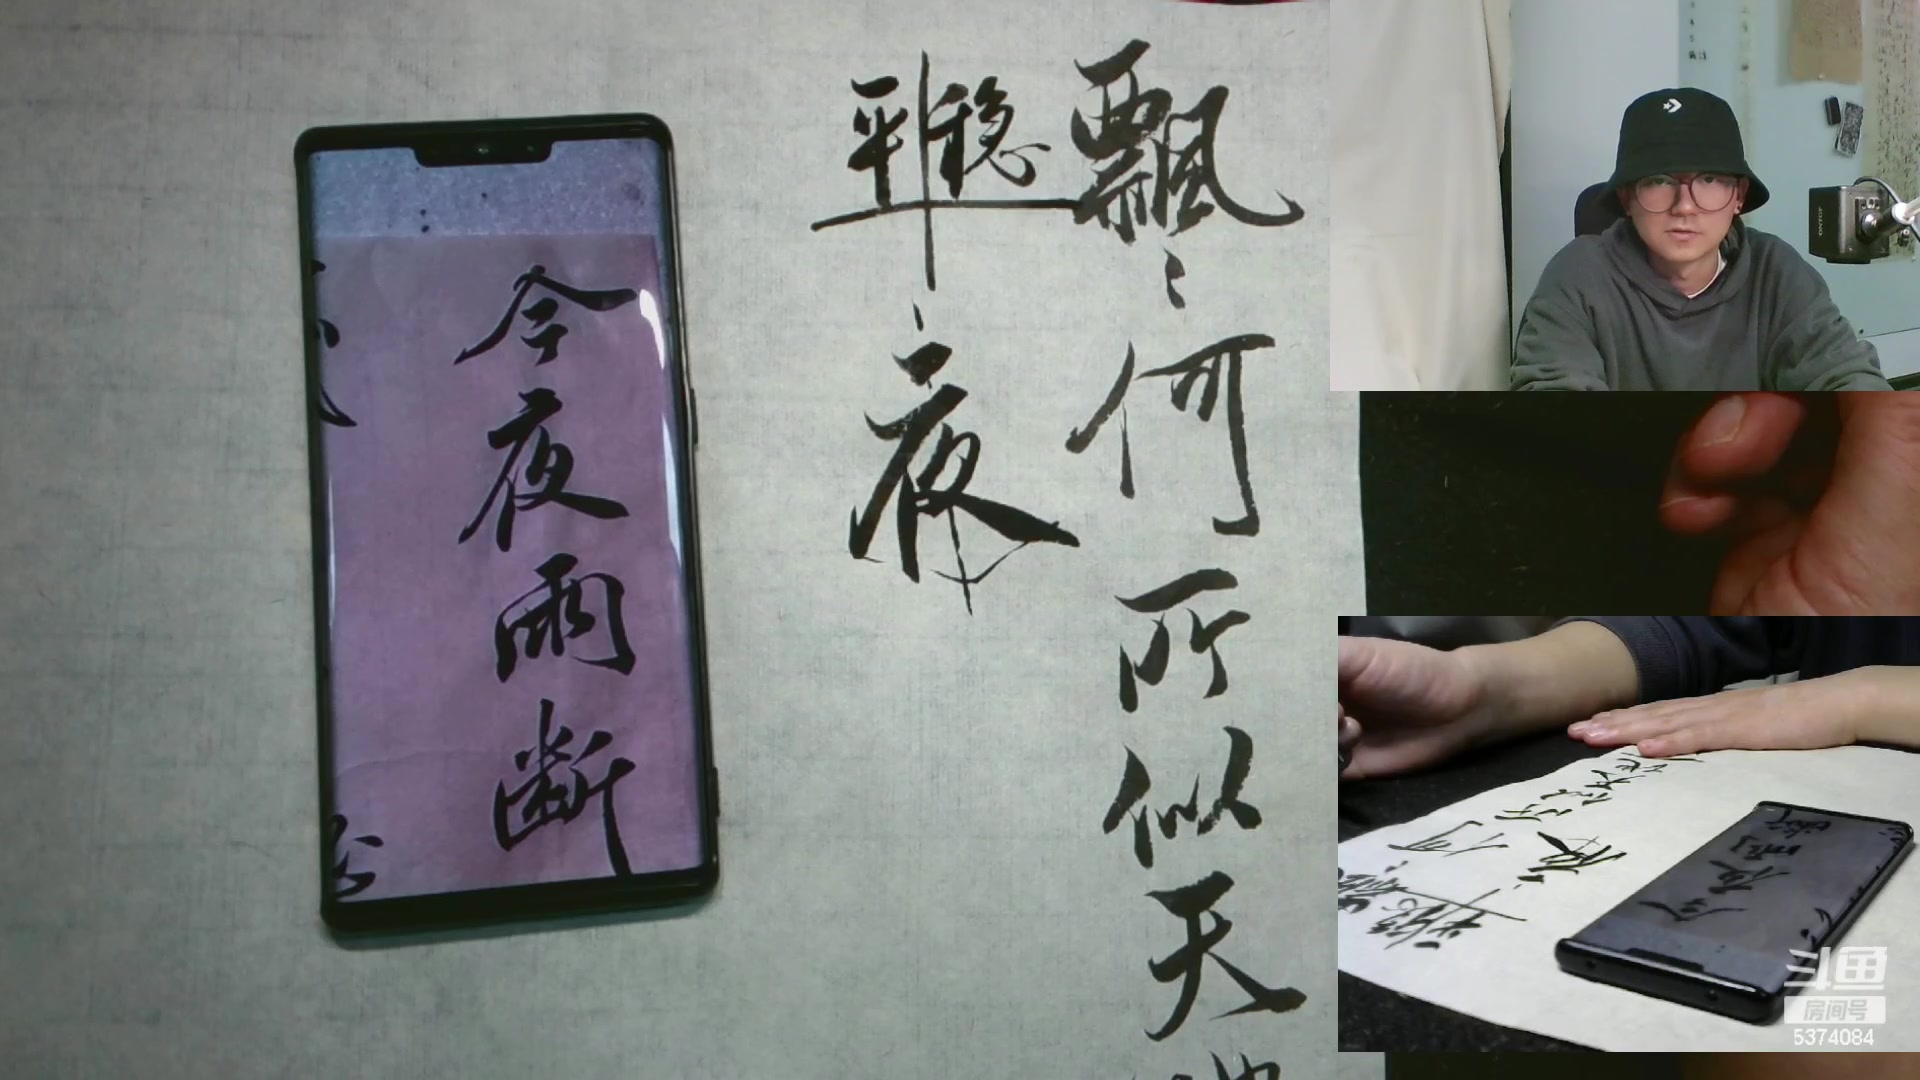 飘〻何所似天
平稳
夜
今夜雨断
斗鱼
房间号
5374084